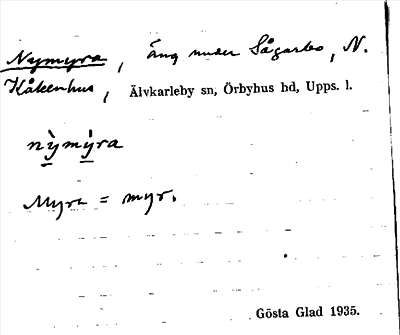 Nymyra, äng under Sågarbo, N.
Håkenhus, Älvkarleby sn, Örbyhus hd, Upps. l.
nỳmỳra
Myra = myr.
Gösta Glad 1935.